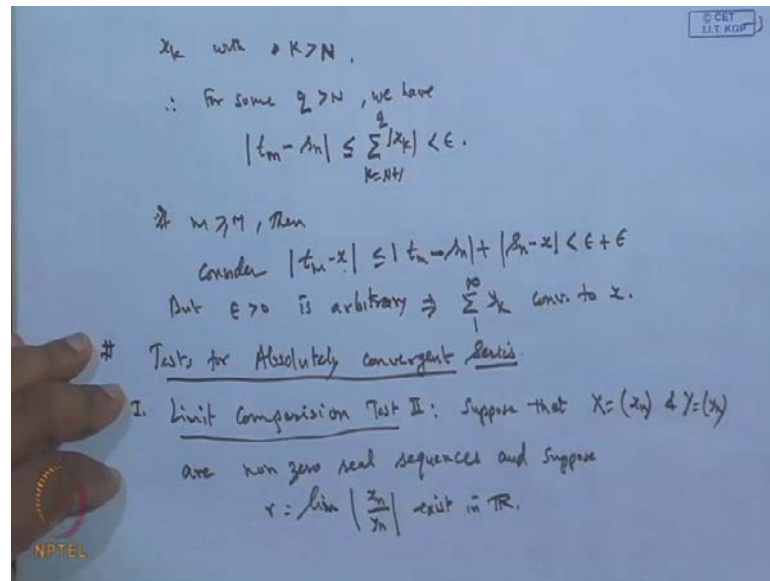 © CET
I.I.T. KGP
x_k with K>N.
∴ For some q>N, we have
|t_m - s_n| ≤ ∑_{k=N+1}^{q} |x_k| < ε.
If m≥M, then
Consider |t_m - x| ≤ |t_m - s_n| + |s_n - x| < ε + ε
But ε>0 is arbitrary ⇒ ∑_{1}^{∞} y_k conv. to x.
# Tests for Absolutely convergent Series
I. Limit Comparision Test II: Suppose that X=(x_n) & Y=(y_n)
are non zero real sequences and suppose
r = lim |x_n/y_n| exist in ℝ.
NPTEL